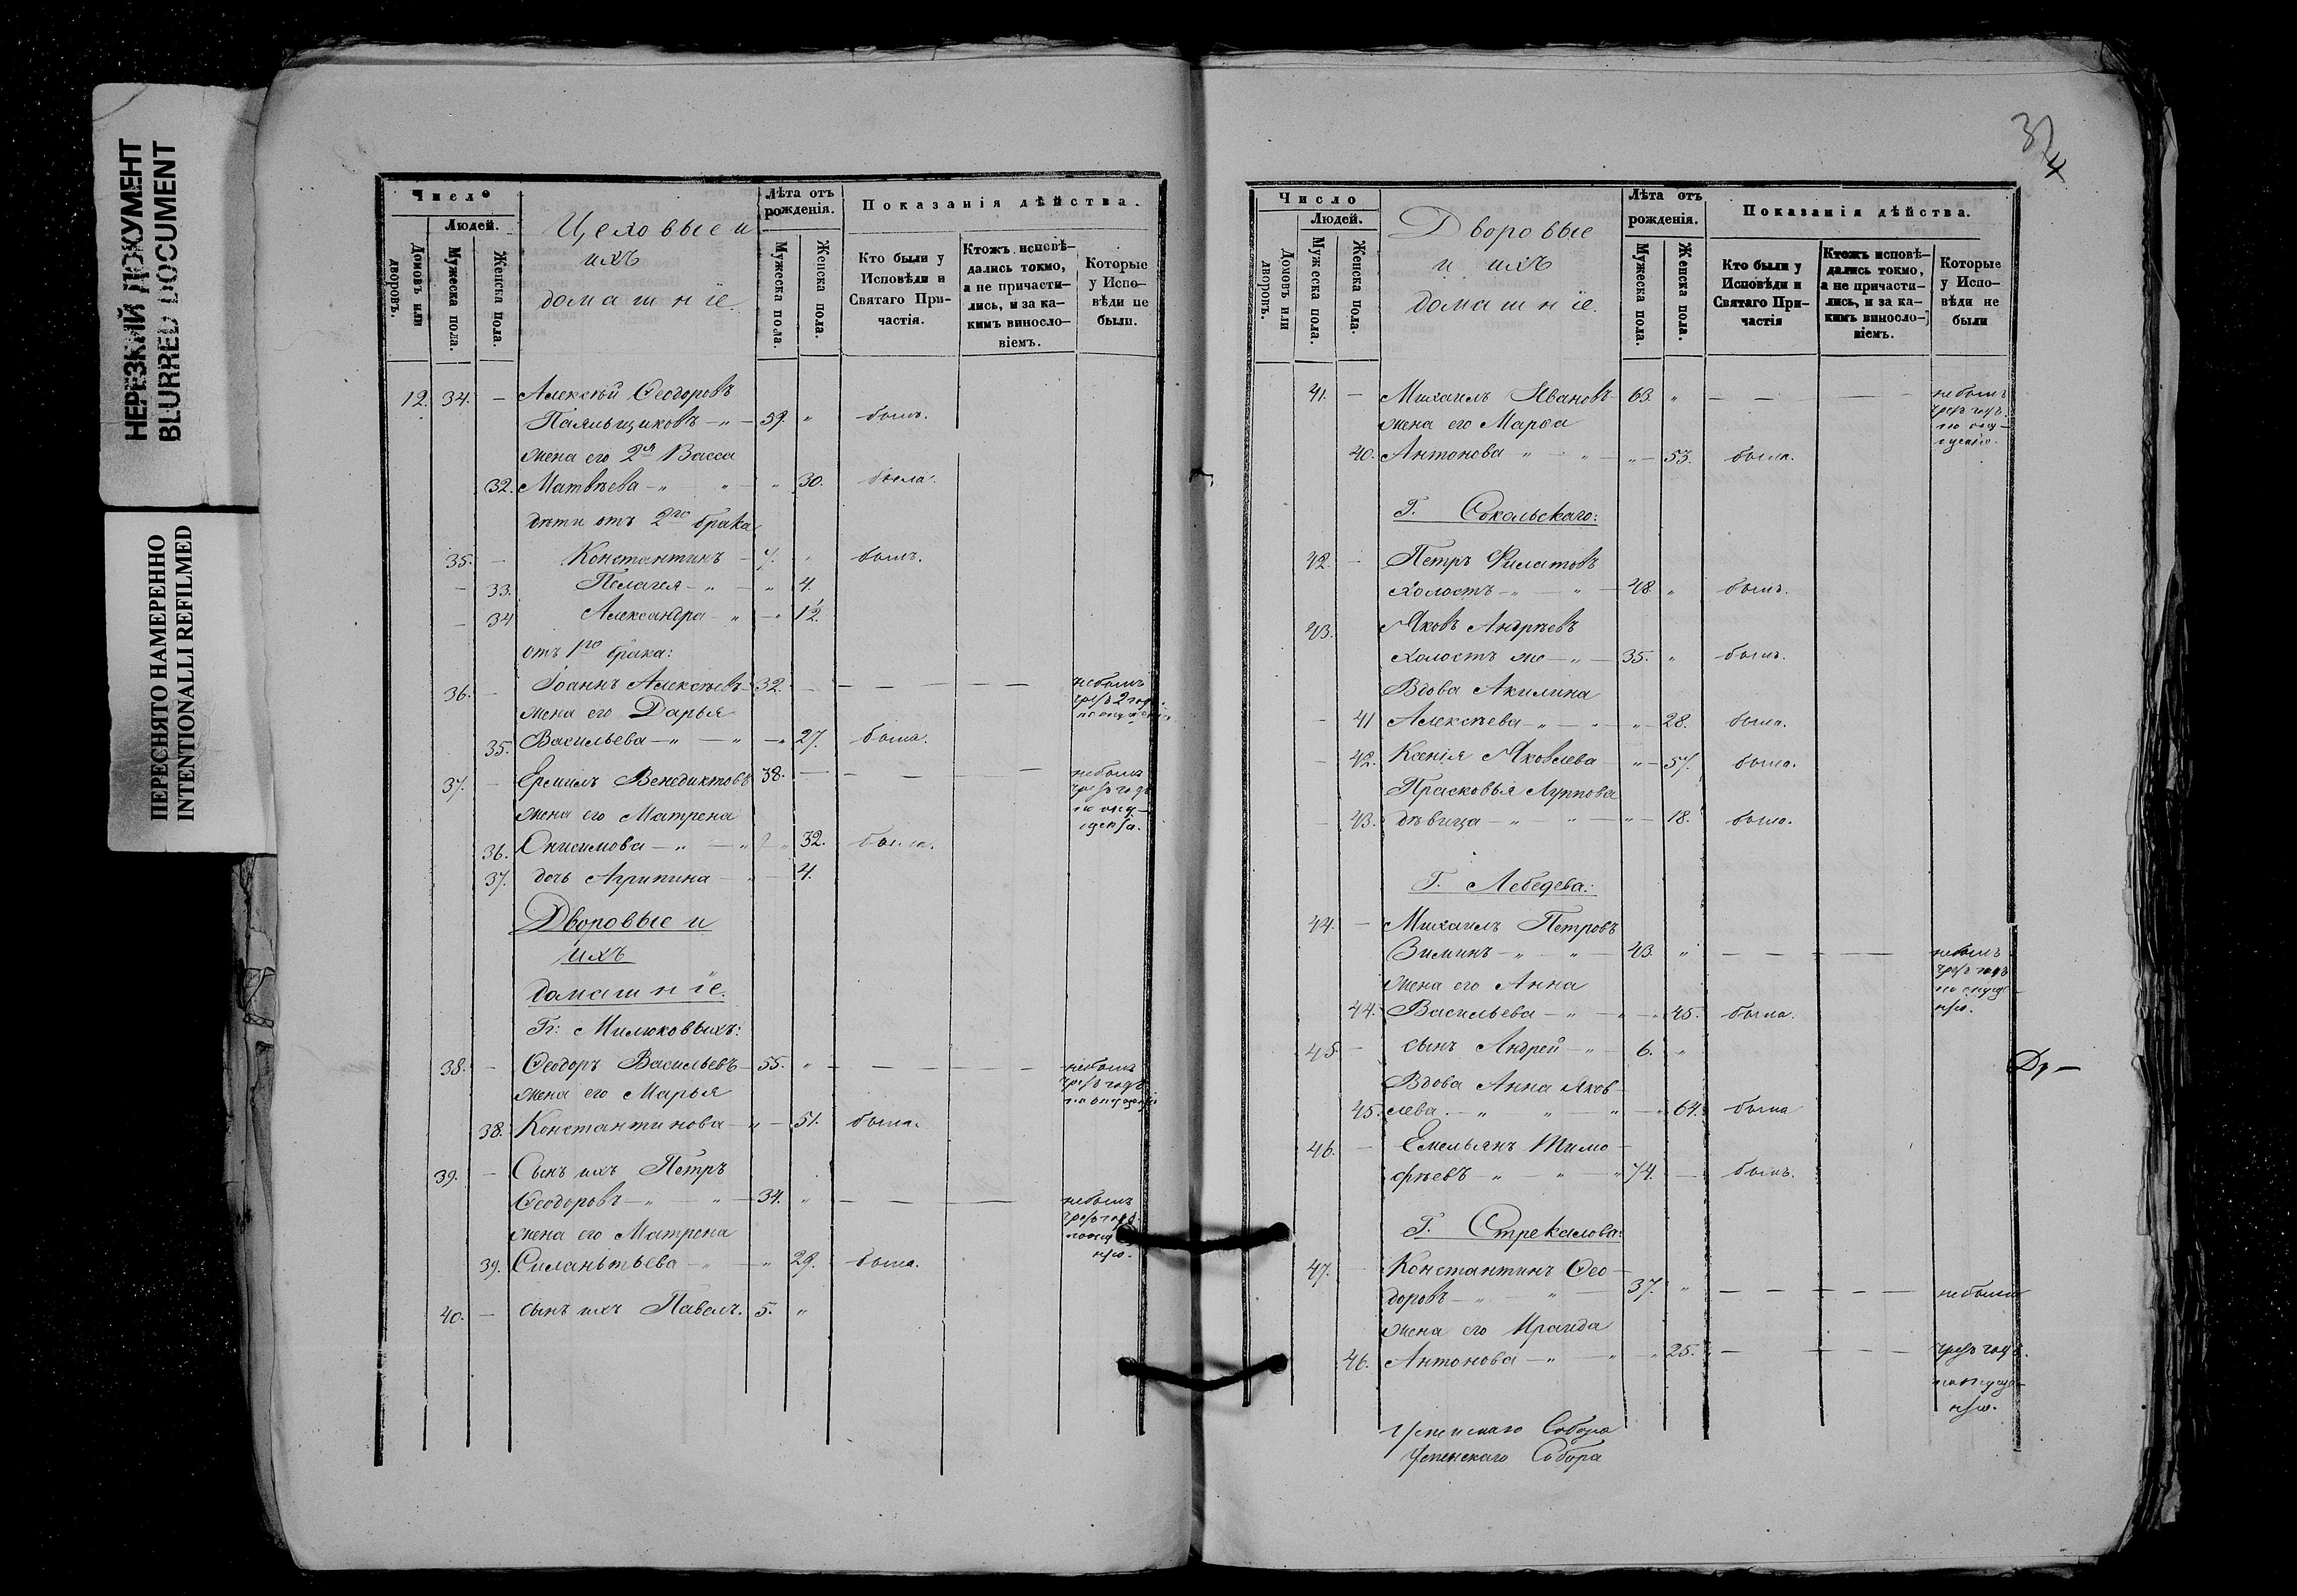 НЕРЕЗКИЙ ДОКУМЕНТ
BLURRED DOCUMENT
ПЕРЕСНЯТО НАМЕРЕННО
INTENTIONALLI REFILMED
Число
Людей.
Домовъ или дворовъ.
Мужеска пола.
Женска пола.
Цеховые и
ихъ
домашнiе.
Лѣта отъ рожденія.
Мужеска пола.
Женска пола.
Показанія дѣйства.
Кто были у Исповѣди и Святаго Причастія.
Ктожъ исповѣдались токмо, а не причастились, и за какимъ винословіемъ.
Которые у Исповѣди не были.
12. 34. — Алексѣй Ѳеодоровъ
Паяльщиковъ — 59. " былъ.
жена его 2я Васса
32. Матвѣева — " — " 30. была.
дѣти отъ 2го брака
35. — Константинъ — 7. " былъ.
— 33. Пелагея — " — " 4.
— 34 Александра — " — " 1/2.
отъ 1го брака:
36. — Іоаннъ Алексѣевъ — 32. — — — — небылъ
чрезъ 2 года
жена его Дарья
35. Васильева — " — " — " 27. была.
37. — Ермилъ Венедиктовъ 38. — — — — небылъ
чрезъ годъ
по опу-
щенію.
жена его Матрена
36. Онисимова — " — " 32. была.
37. дочь Агрипина — 4.
Дворовые и
ихъ
домашнiе.
Гг: Милюковыхъ:
38. — Ѳеодоръ Васильевъ — 55. " — — — — небылъ
чрезъ годъ
по опущенію
жена его Марья
38. Константинова — " — 51. была.
39. — Сынъ ихъ Петръ
Ѳеодоровъ — " — " — 34. " — — — небылъ
чрезъ годъ
жена его Матрена
39. Силантьева — " — " 29. была.
40. — сынъ ихъ Павелъ. 5. "
Число
Людей.
Домовъ или дворовъ.
Мужеска пола.
Женска пола.
Дворовые
и ихъ
домашнiе.
Лѣта отъ рожденія.
Мужеска пола.
Женска пола.
Показанія дѣйства.
Кто были у Исповѣди и Святаго Причастія
Ктожъ исповѣдались токмо, а не причастились, и за какимъ винословіемъ.
Которые у Исповѣди не были
41. — Михаилъ Ивановъ — 63. " — — — — небылъ
чрезъ годъ
по опу-
щенію.
жена его Марѳа
40. Антонова " — " — " — 53. была.
Г. Сокольскаго:
42. — Петръ Филатовъ
холостъ — " — " — 48. " былъ.
43. Яковъ Андрѣевъ
холостъ же — " — 35. " былъ.
Вдова Акилина
— 41 Алексѣева — " — " — " — 28. была.
— 42. Ксенія Яковлева — " — 57. была.
Прасковья Луппова
— 43. дѣвица — " — " — " — 18. была.
Г. Лебедева:
44. — Михаилъ Петровъ
Зиминъ — " — " — 43. " — — — — небылъ
чрезъ годъ
по опуще-
нію.
жена его Анна
44. Васильева — " — " — " 45. была.
45. — сынъ Андрей — " — 6. "
Др —
Вдова Анна Яков-
45. лева. — " " — " — " 64. была
46. — Емельянъ Тимо-
фѣевъ — " — " — " 74. — былъ.
Г. Стрекалова:
47. — Константинъ Ѳео-
доровъ — " — " — 37. " — — — — небыли
жена его Ираида
46. Антонова — " — " — " 25. — — — — чрезъ годъ.
по опуще-
нію.
Успенскаго Собора
Успенскаго Собора